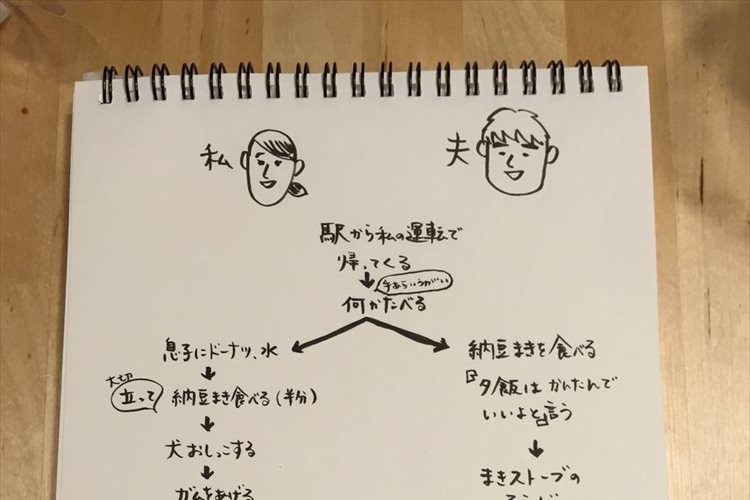 私
夫
駅から私の運転で
帰ってくる
手あらいうがい
何かたべる
息子にドーナツ、水
大切
立って 納豆まき食べる(半分)
犬おしっこする
ガムをあげる
納豆まきを食べる
『夕飯はかんたんで
いいよと』言う
まきストーブの